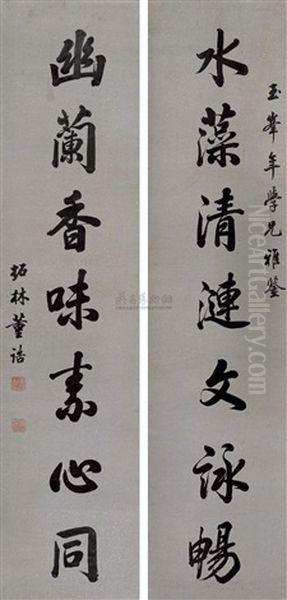 玉峯年學兄雅鑒
水藻清漣文詠暢
幽蘭香味素心同
柘林董誥
NiceArt.com